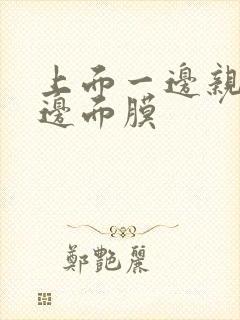 上而一邊親
邊而膜
鄭艷麗